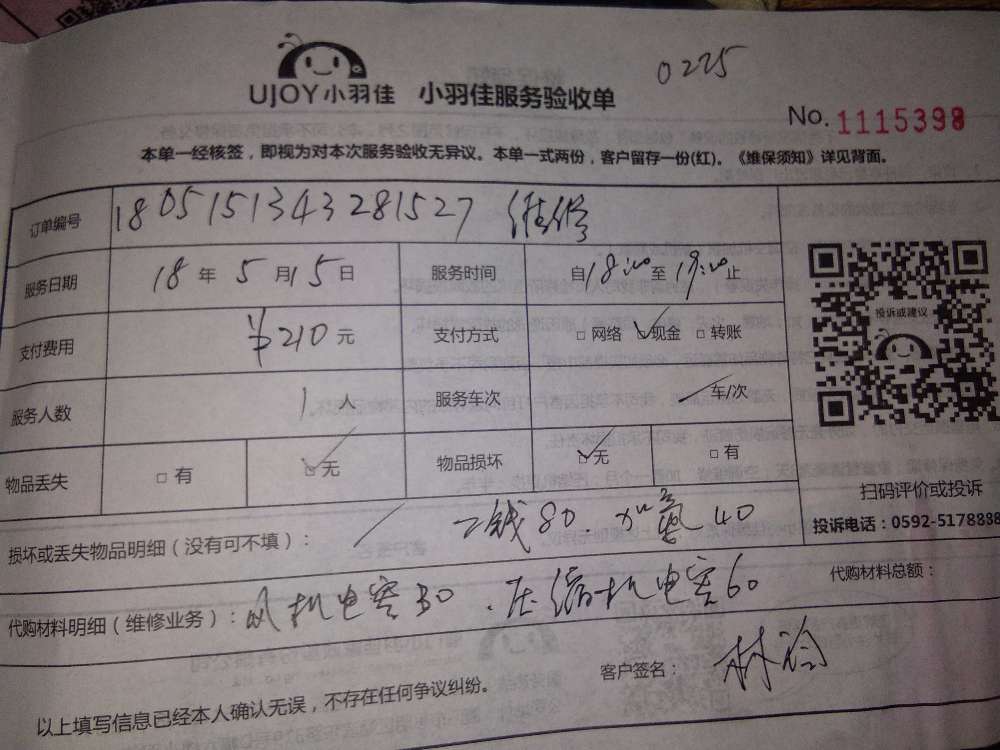 0225
UJOY小羽佳 小羽佳服务验收单
No. 1115398
本单一经核签，即视为对本次服务验收无异议。本单一式两份，客户留存一份(红)。《维保须知》详见背面。
订单编号 1805151343281527 维修
服务日期 18 年 5 月 15 日 服务时间 自 18:00 至 19:00 止
支付费用 ¥210 元 支付方式 □ 网络 ☑ 现金 □ 转账
服务人数 1 人 服务车次 车/次
物品丢失 □ 有 ☑ 无 物品损坏 ☑ 无 □ 有
投诉或建议
扫码评价或投诉
投诉电话：0592-5178838
损坏或丢失物品明细（没有可不填）： / 工钱80. 加氟40
代购材料明细（维修业务）：风机电容30 . 压缩机电容60
代购材料总额：
客户签名：林
以上填写信息已经本人确认无误，不存在任何争议纠纷。